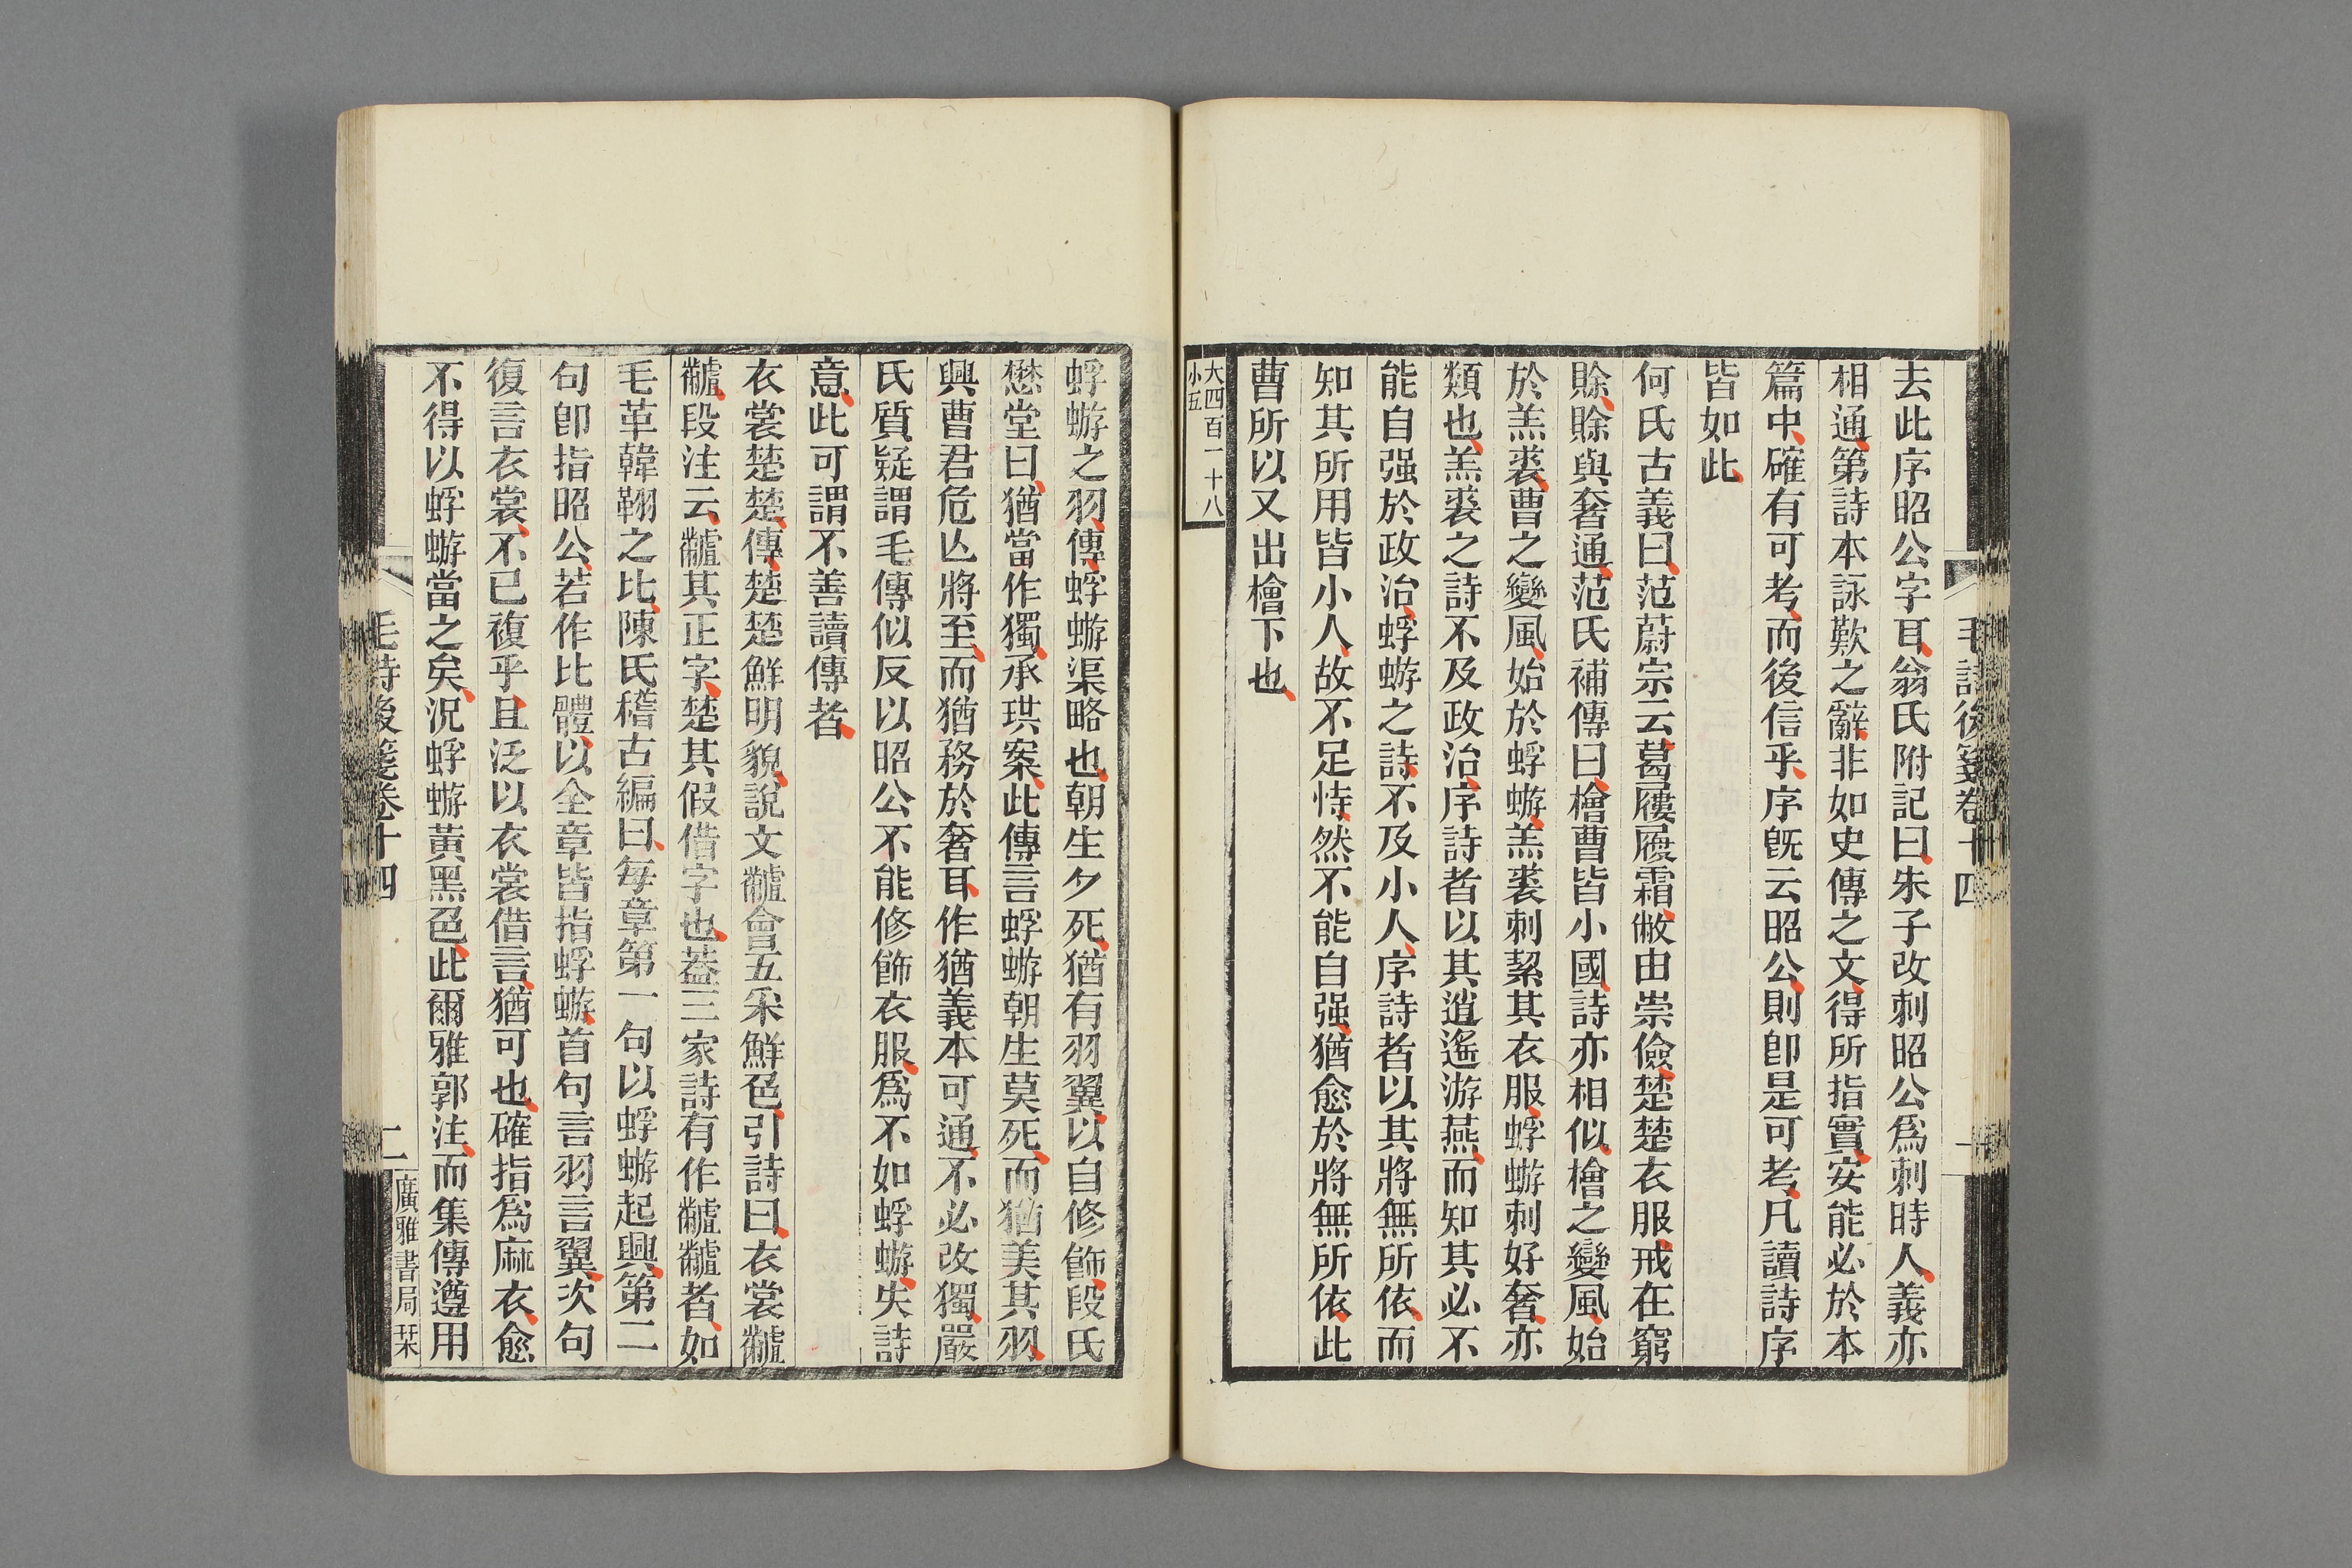 毛詩後箋卷十四
去此序昭公字耳翁氏附記曰朱子改刺昭公爲刺時人義亦
相通第詩本詠歎之辭非如史傳之文得所指實安能必於本
篇中確有可考而後信乎序旣云昭公則卽是可考凡讀詩序
皆如此
何氏古義曰范蔚宗云葛屨履霜敝由崇儉楚楚衣服戒在窮
賒賒與奢通范氏補傳曰檜曹皆小國詩亦相似檜之變風始
於羔裘曹之變風始於蜉蝣羔裘刺絜其衣服蜉蝣刺好奢亦
類也羔裘之詩不及政治序詩者以其逍遙游燕而知其必不
能自强於政治蜉蝣之詩不及小人序詩者以其將無所依而
知其所用皆小人故不足恃然不能自强猶愈於將無所依此
曹所以又出檜下也
大四百一十八
小五
蜉蝣之羽傳蜉蝣渠略也朝生夕死猶有羽翼以自修飾段氏
懋堂曰猶當作獨承珙案此傳言蜉蝣朝生莫死而猶美其羽
興曹君危亾將至而猶務於奢耳作猶義本可通不必改獨嚴
氏質疑謂毛傳似反以昭公不能修飾衣服爲不如蜉蝣失詩
意此可謂不善讀傳者
衣裳楚楚傳楚楚鮮明貌說文黸會五采鮮色引詩曰衣裳黸
黸段注云黸其正字楚其假借字也葢三家詩有作黸黸者如
毛革韓鞹之比陳氏稽古編曰每章第一句以蜉蝣起興第二
句卽指昭公若作比體以全章皆指蜉蝣首句言羽言翼次句
復言衣裳不已複乎且泛以衣裳借言猶可也確指爲麻衣愈
不得以蜉蝣當之矣況蜉蝣黃黑色此爾雅郭注而集傳遵用
毛詩後箋卷十四
二
廣雅書局栞